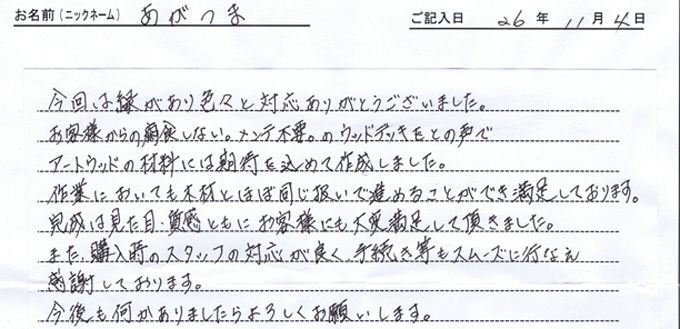 お名前(ニックネーム) あがつま ご記入日 26年11月4日
今回は縁があり色々と対応ありがとうございました。
お客様からの腐食しない。メンテ不要。のウッドデッキをとの声で
アートウッドの材料には期待を込めて作成しました。
作業においても木材とほぼ同じ扱いで進めることができ満足しております。
完成は見た目・質感ともにお客様にも大変満足して頂きました。
また、購入時のスタッフの対応が良く、手続き等もスムーズに行なえ
感謝しております。
今後も何かありましたらよろしくお願いします。